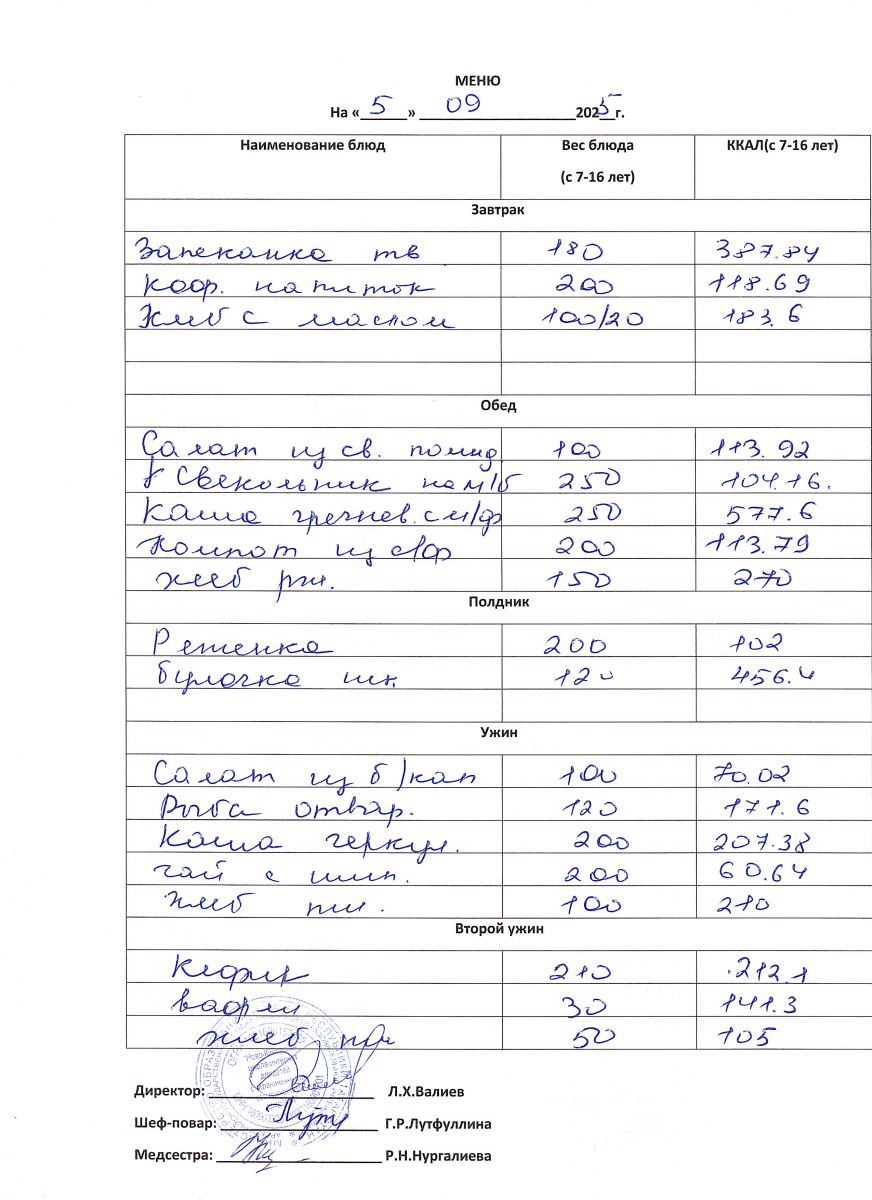 МЕНЮ
На « 5 » 09 2025 г.
Наименование блюд Вес блюда (с 7-16 лет) ККАЛ(с 7-16 лет)
Завтрак
Запеканка тв 180 387.84
Кофр. напиток 200 118.69
Хлеб с маслом 100/20 183.6
Обед
Салат из св. помид 100 113.92
Свекольник на м/б 250 104.16.
Каша гречнев. с м/ф 250 577.6
Компот из с/ф 200 113.79
хлеб рж. 150 270
Полдник
Ряженка 200 102
Булочка 120 456.4
Ужин
Салат из б/кап 100 70.02
Рыба отвар. 120 171.6
Каша геркул. 200 207.38
чай с шип. 200 60.64
Хлеб пш. 100 210
Второй ужин
Кефир 210 212.1
вафли 30 141.3
хлеб 50 105
Директор: Л.Х.Валиев
Шеф-повар: Г.Р.Лутфуллина
Медсестра: Р.Н.Нургалиева